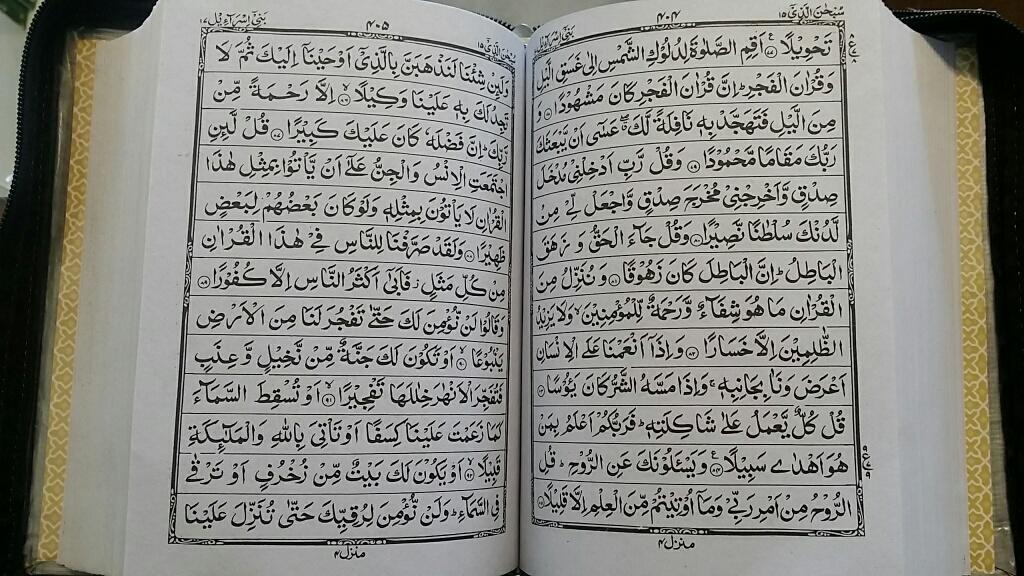 سبحن الذی ١٥
٤٠٤
بنی اسرآءیل ١٧
تَحْوِيْلًا ۞ اَقِمِ الصَّلٰوةَ لِدُلُوْكِ الشَّمْسِ اِلٰى غَسَقِ الَّيْلِ
وَقُرْاٰنَ الْفَجْرِ ؕ اِنَّ قُرْاٰنَ الْفَجْرِ كَانَ مَشْهُوْدًا ۞ وَ
مِنَ الَّيْلِ فَتَهَجَّدْ بِهٖ نَافِلَةً لَّكَ ۖ عَسٰٓى اَنْ يَّبْعَثَكَ
رَبُّكَ مَقَامًا مَّحْمُوْدًا ۞ وَقُلْ رَّبِّ اَدْخِلْنِيْ مُدْخَلَ
صِدْقٍ وَّاَخْرِجْنِيْ مُخْرَجَ صِدْقٍ وَّاجْعَلْ لِّيْ مِنْ
لَّدُنْكَ سُلْطٰنًا نَّصِيْرًا ۞ وَقُلْ جَآءَ الْحَقُّ وَ زَهَقَ
الْبَاطِلُ ؕ اِنَّ الْبَاطِلَ كَانَ زَهُوْقًا ۞ وَ نُنَزِّلُ مِنَ
الْقُرْاٰنِ مَا هُوَ شِفَآءٌ وَّرَحْمَةٌ لِّلْمُؤْمِنِيْنَ ۙ وَلَا يَزِيْدُ
الظّٰلِمِيْنَ اِلَّا خَسَارًا ۞ وَاِذَآ اَنْعَمْنَا عَلَى الْاِنْسَانِ
اَعْرَضَ وَنَاٰ بِجَانِبِهٖ ۚ وَاِذَا مَسَّهُ الشَّرُّ كَانَ يَـُٔوْسًا ۞
قُلْ كُلٌّ يَّعْمَلُ عَلٰى شَاكِلَتِهٖ ؕ فَرَبُّكُمْ اَعْلَمُ بِمَنْ
هُوَ اَهْدٰى سَبِيْلًا ۞ وَيَسْـَٔلُوْنَكَ عَنِ الرُّوْحِ ؕ قُلِ
الرُّوْحُ مِنْ اَمْرِ رَبِّيْ وَمَآ اُوْتِيْتُمْ مِّنَ الْعِلْمِ اِلَّا قَلِيْلًا ۞
منزل ٤
سبحن الذی ١٥
٤٠٥
بنی اسرآءیل ١٧
وَلَئِنْ شِئْنَا لَنَذْهَبَنَّ بِالَّذِيْٓ اَوْحَيْنَآ اِلَيْكَ ثُمَّ لَا
تَجِدُ لَكَ بِهٖ عَلَيْنَا وَكِيْلًا ۞ اِلَّا رَحْمَةً مِّنْ
رَّبِّكَ ؕ اِنَّ فَضْلَهٗ كَانَ عَلَيْكَ كَبِيْرًا ۞ قُلْ لَّئِنِ
اجْتَمَعَتِ الْاِنْسُ وَالْجِنُّ عَلٰٓى اَنْ يَّاْتُوْا بِمِثْلِ هٰذَا
الْقُرْاٰنِ لَا يَاْتُوْنَ بِمِثْلِهٖ وَلَوْ كَانَ بَعْضُهُمْ لِبَعْضٍ
ظَهِيْرًا ۞ وَلَقَدْ صَرَّفْنَا لِلنَّاسِ فِيْ هٰذَا الْقُرْاٰنِ
مِنْ كُلِّ مَثَلٍ ؗ فَاَبٰٓى اَكْثَرُ النَّاسِ اِلَّا كُفُوْرًا ۞
وَقَالُوْا لَنْ نُّؤْمِنَ لَكَ حَتّٰى تَفْجُرَ لَنَا مِنَ الْاَرْضِ
يَنْۢبُوْعًا ۞ اَوْ تَكُوْنَ لَكَ جَنَّةٌ مِّنْ نَّخِيْلٍ وَّ عِنَبٍ
فَتُفَجِّرَ الْاَنْهٰرَ خِلٰلَهَا تَفْجِيْرًا ۞ اَوْ تُسْقِطَ السَّمَآءَ
كَمَا زَعَمْتَ عَلَيْنَا كِسَفًا اَوْ تَاْتِيَ بِاللّٰهِ وَالْمَلٰٓئِكَةِ
قَبِيْلًا ۞ اَوْ يَكُوْنَ لَكَ بَيْتٌ مِّنْ زُخْرُفٍ اَوْ تَرْقٰى
فِي السَّمَآءِ ؕ وَلَنْ نُّؤْمِنَ لِرُقِيِّكَ حَتّٰى تُنَزِّلَ عَلَيْنَا
منزل ٤